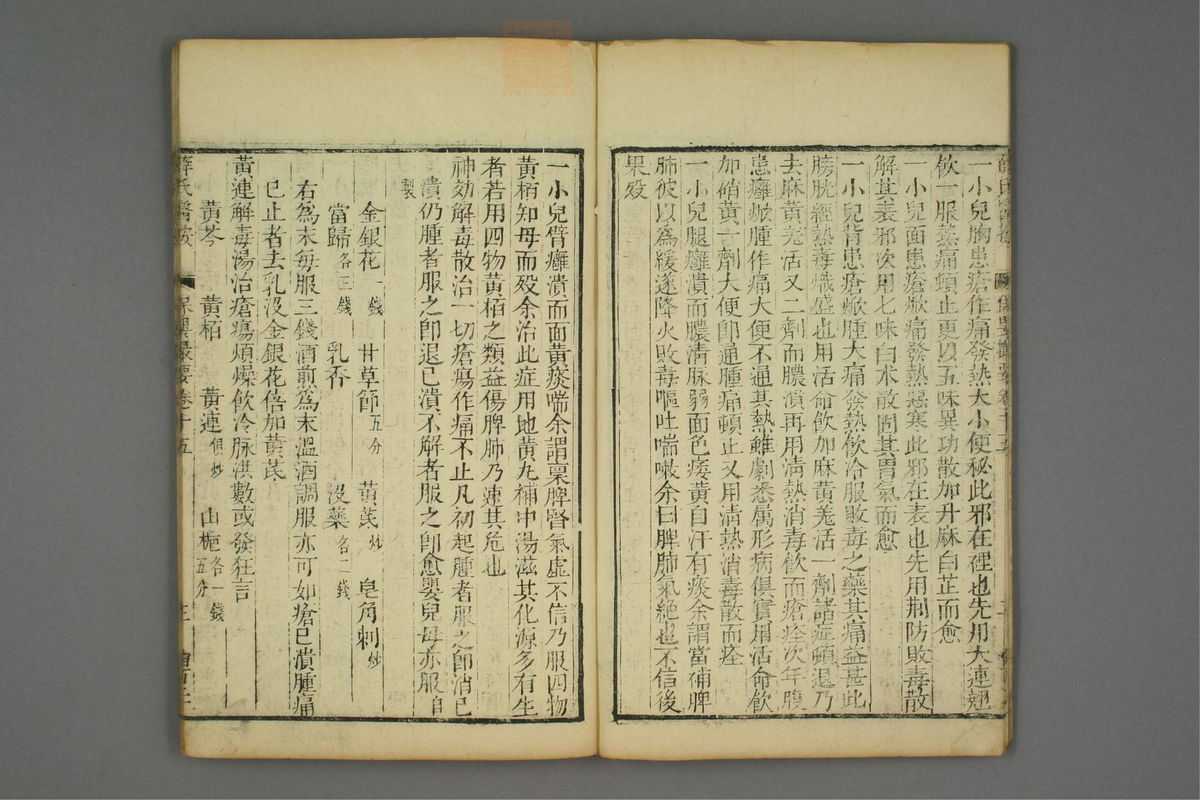 一小兒胸患瘡作痛發熱大小便秘此邪在裡也先用大連翹
飲一服熱痛頓止更以五味異功散加升麻白芷而愈
一小兒面患瘡焮痛發熱惡寒此邪在表也先用荆防敗毒散
解其表邪次用七味白术散固其胃氣而愈
一小兒背患瘡焮腫大痛發熱飲冷服敗毒之藥其痛益甚此
膀胱經熱毒熾盛也用活命飲加麻黃羌活一劑諸症頓退乃
去麻黃羌活又二劑而膿潰再用清熱消毒飲而瘡痊次年腹
患癰焮腫作痛大便不通其熱雖劇悉属形病俱實用活命飲
加硝黃一劑大便卽通腫痛頓止又用清熱消毒散而痊
一小兒腿癰潰而膿清脉弱面色痿黃自汗有痰余謂當補脾
肺彼以爲緩遂降火敗毒嘔吐喘嗽余曰脾肺氣絕也不信後
果殁
一小兒臂癰潰而面黃痰喘余謂稟脾腎氣虛不信乃服四物
黃栢知母而殁余治此症用地黃丸補中湯滋其化源多有生
者若用四物黃栢之類益傷脾肺乃速其危也
神効解毒散治一切瘡瘍作痛不止凡初起腫者服之卽消已
潰仍腫者服之卽退已潰不解者服之卽愈嬰兒母亦服自
製
金銀花一錢 甘草節五分 黃芪炒 皂角刺炒
當歸各三錢 乳香 沒藥各二錢
右爲末每服三錢酒煎爲末溫酒調服亦可如瘡已潰腫痛
已止者去乳沒金銀花倍加黃芪
黃連解毒湯治瘡瘍煩燥飲冷脉洪數或發狂言
黃芩 黃栢 黃連俱炒 山梔各一錢五分
薛氏醫按 保嬰撮要卷十五